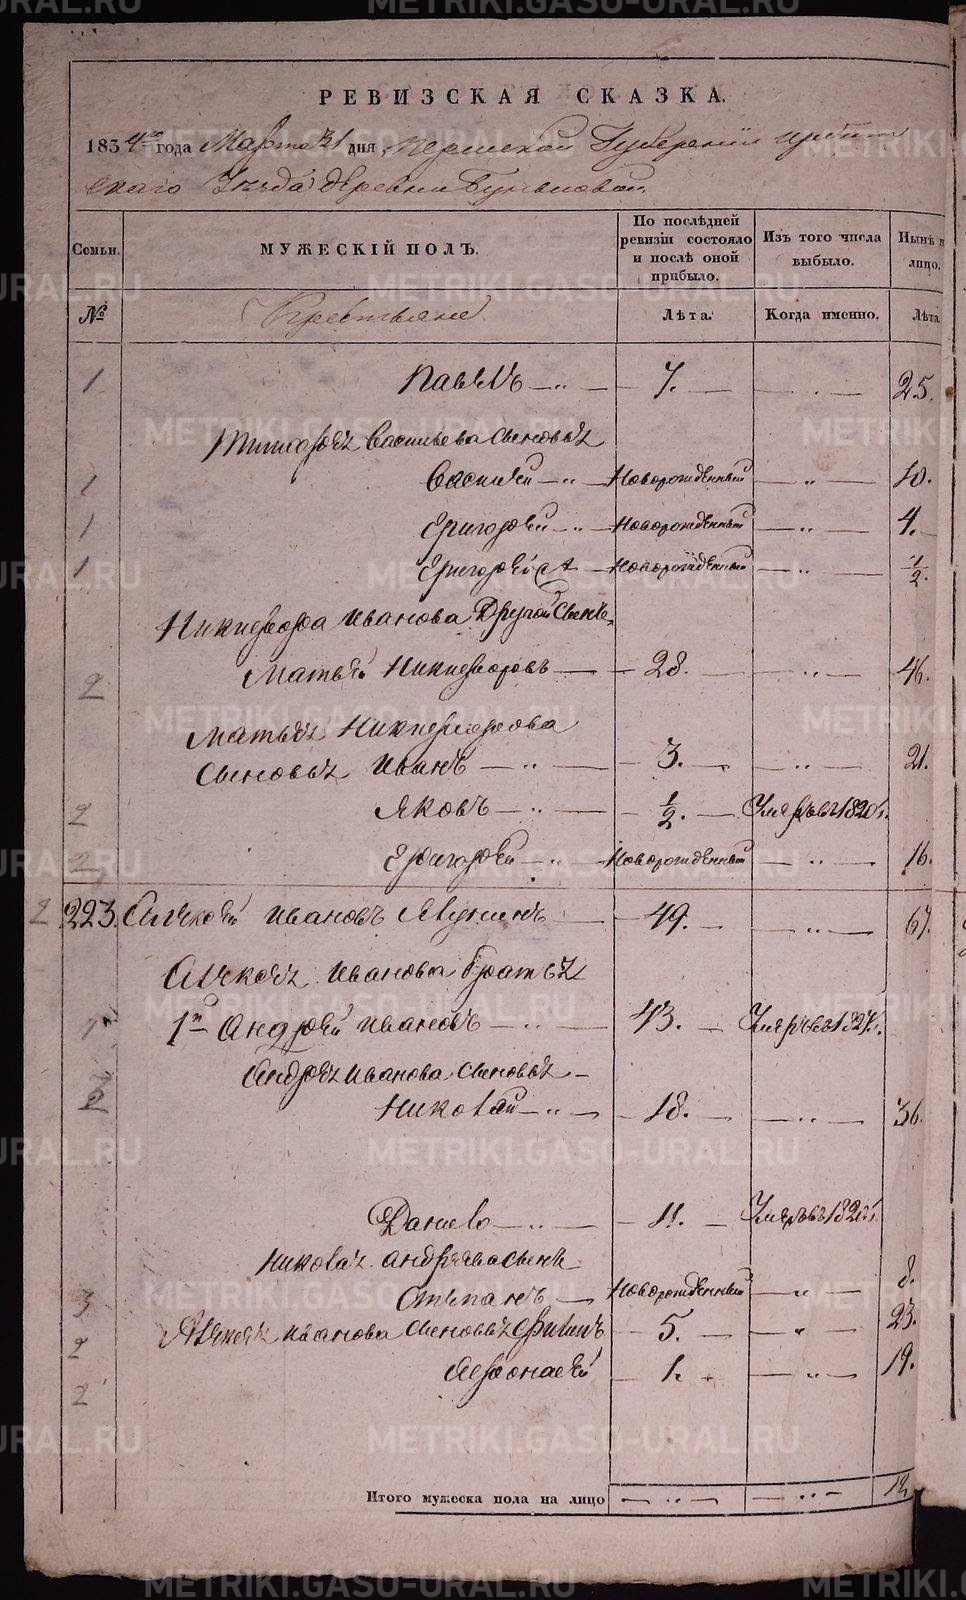 METRIKI.GASO-URAL.RU
РЕВИЗСКАЯ СКАЗКА.
1834го года Марта 31 дня, Пермской Губернии Ирбит
скаго Уезда деревни
Семьи. МУЖЕСКІЙ ПОЛЪ. По послѣдней ревизіи состояло и послѣ оной прибыло. Изъ того числа выбыло. Нынѣ на лицо.
№ Крестьяне Лѣта. Когда именно. Лѣта
1 Павелъ — 7. — 25.
Васильева сыновья
1 Василей — Новорожденный — 10.
1 Григорей — Новорожденный — 4.
1 Григорей — Новорожденный — 1/2.
Никифора Иванова Другой Сынъ
2 Матвей Никифоровъ — 28. — 46.
Матвея Никифорова
Сыновья Иванъ — 3. — 21.
2 Яковъ — 1/2. Умеръ въ 1820 г.
2 Григорей — Новорожденный — 16.
2 223. Алексей Ивановъ — 49. — 67.
Алексея Иванова братья
1й Андрей Ивановъ — 43. — Умеръ въ 182
Андрея Иванова сыновья —
Николай — 18. — 36.
Данило — 11. — Умеръ въ 182
Николая Андреева сынъ
3 Степанъ — Новорожденный — 8.
2 Алексея Иванова сыновья Филипъ — 5. — 23.
2 1. — 19.
Итого мужеска пола на лицо — 12